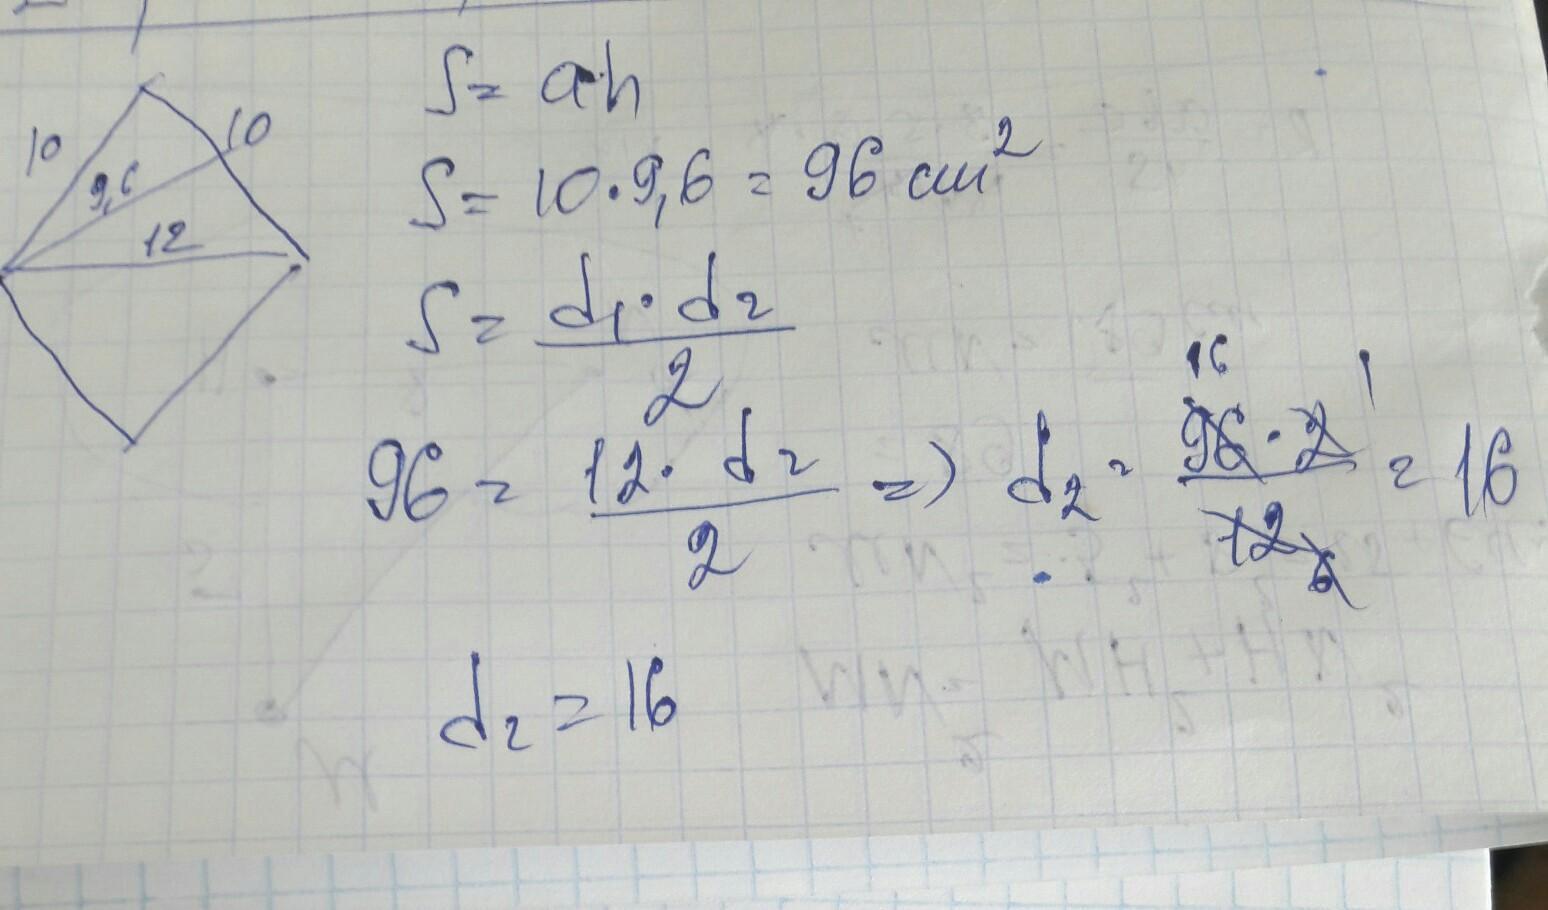 10
10
9,6
12
S = a·h
S = 10·9,6 = 96 см²
S = d₁·d₂ / 2
96 = 12·d₂ / 2 => d₂ = 96·2 / 12 = 16
16 1
6
d₂ = 16